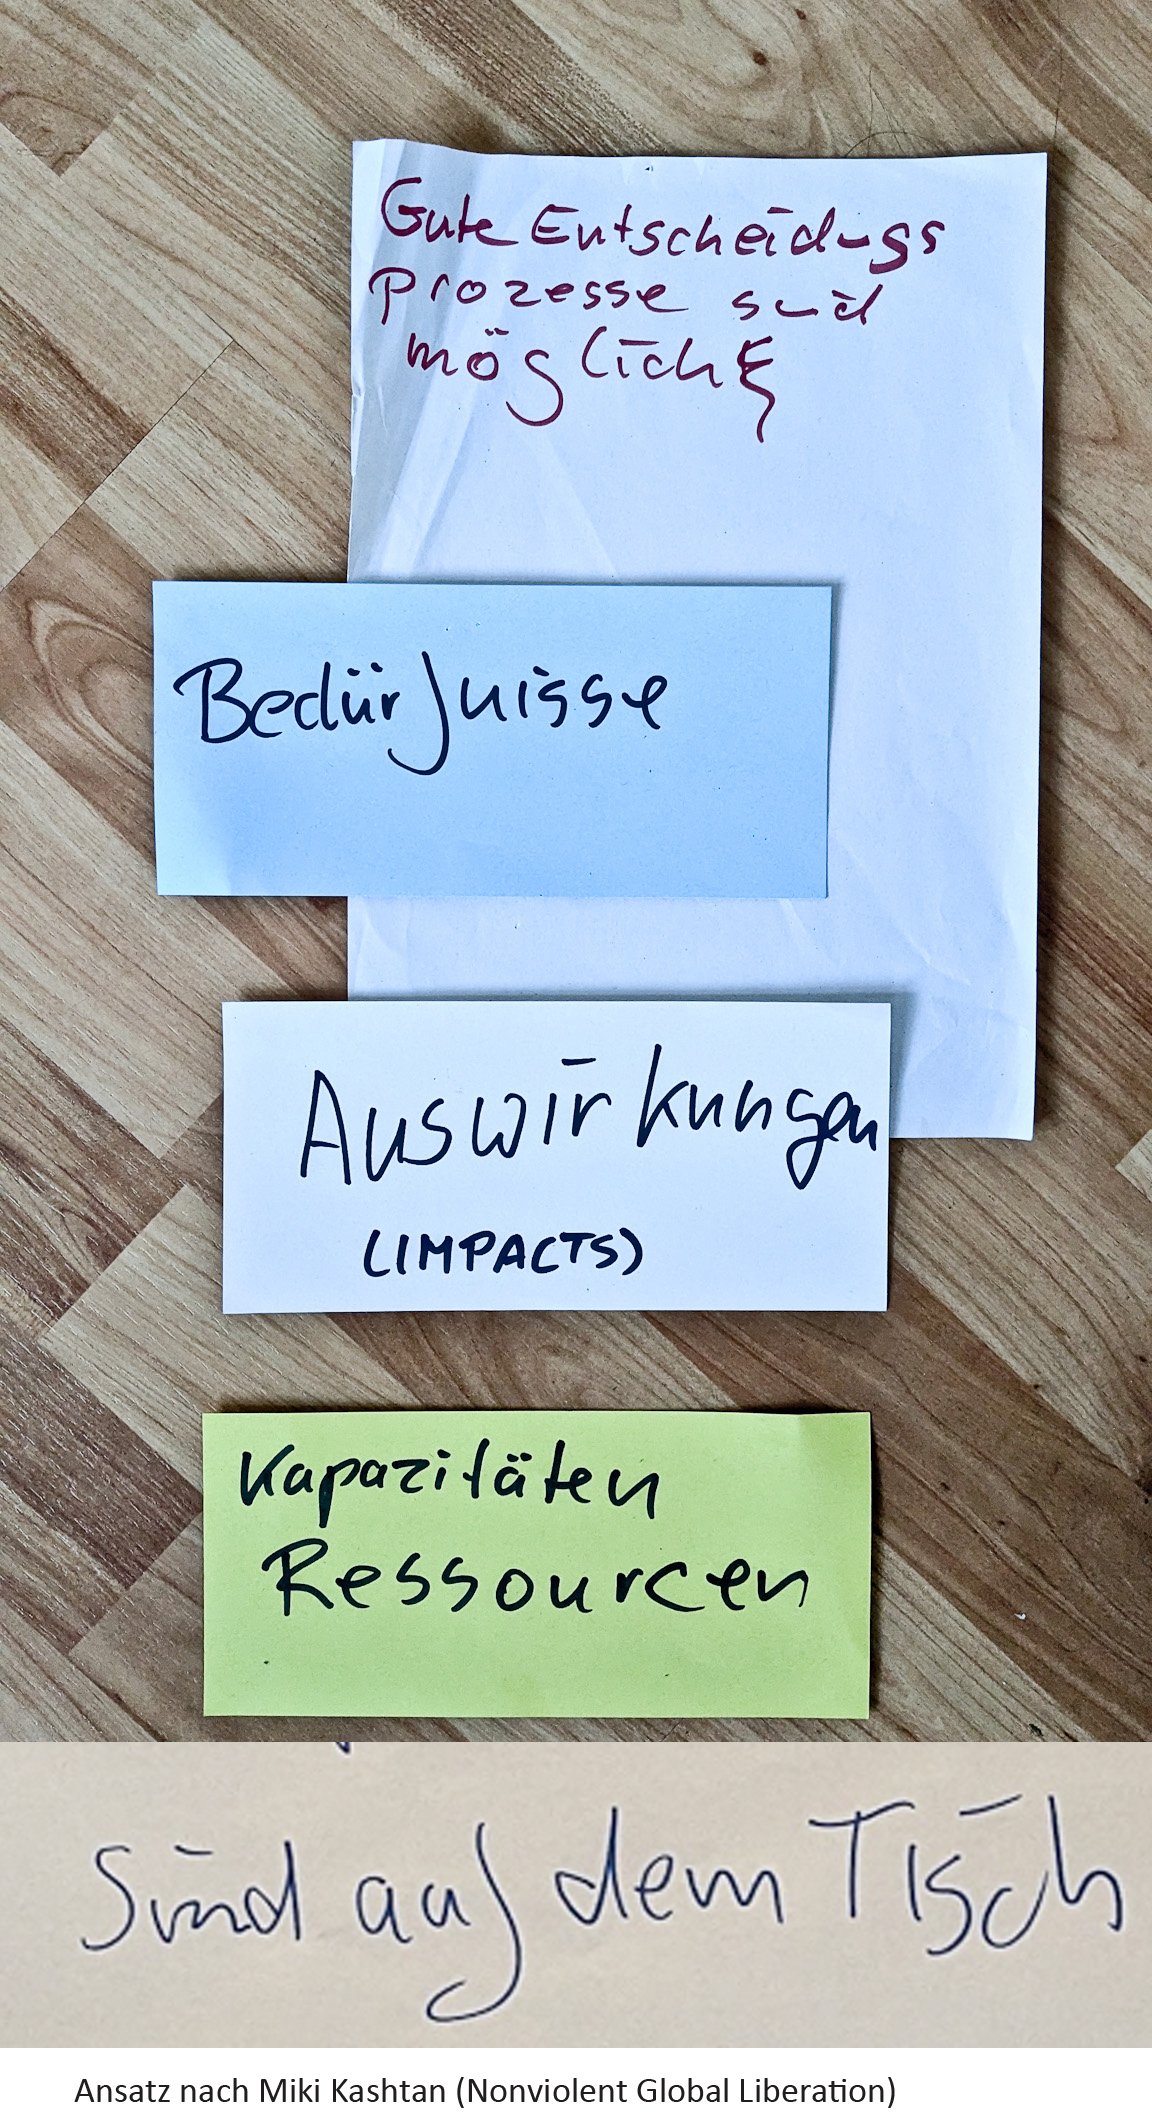 Gute Entscheidungs
Prozesse sind
möglich
Bedürfnisse
Auswirkungen
(IMPACTS)
Kapazitäten
Ressourcen
sind auf dem Tisch
Ansatz nach Miki Kashtan (Nonviolent Global Liberation)